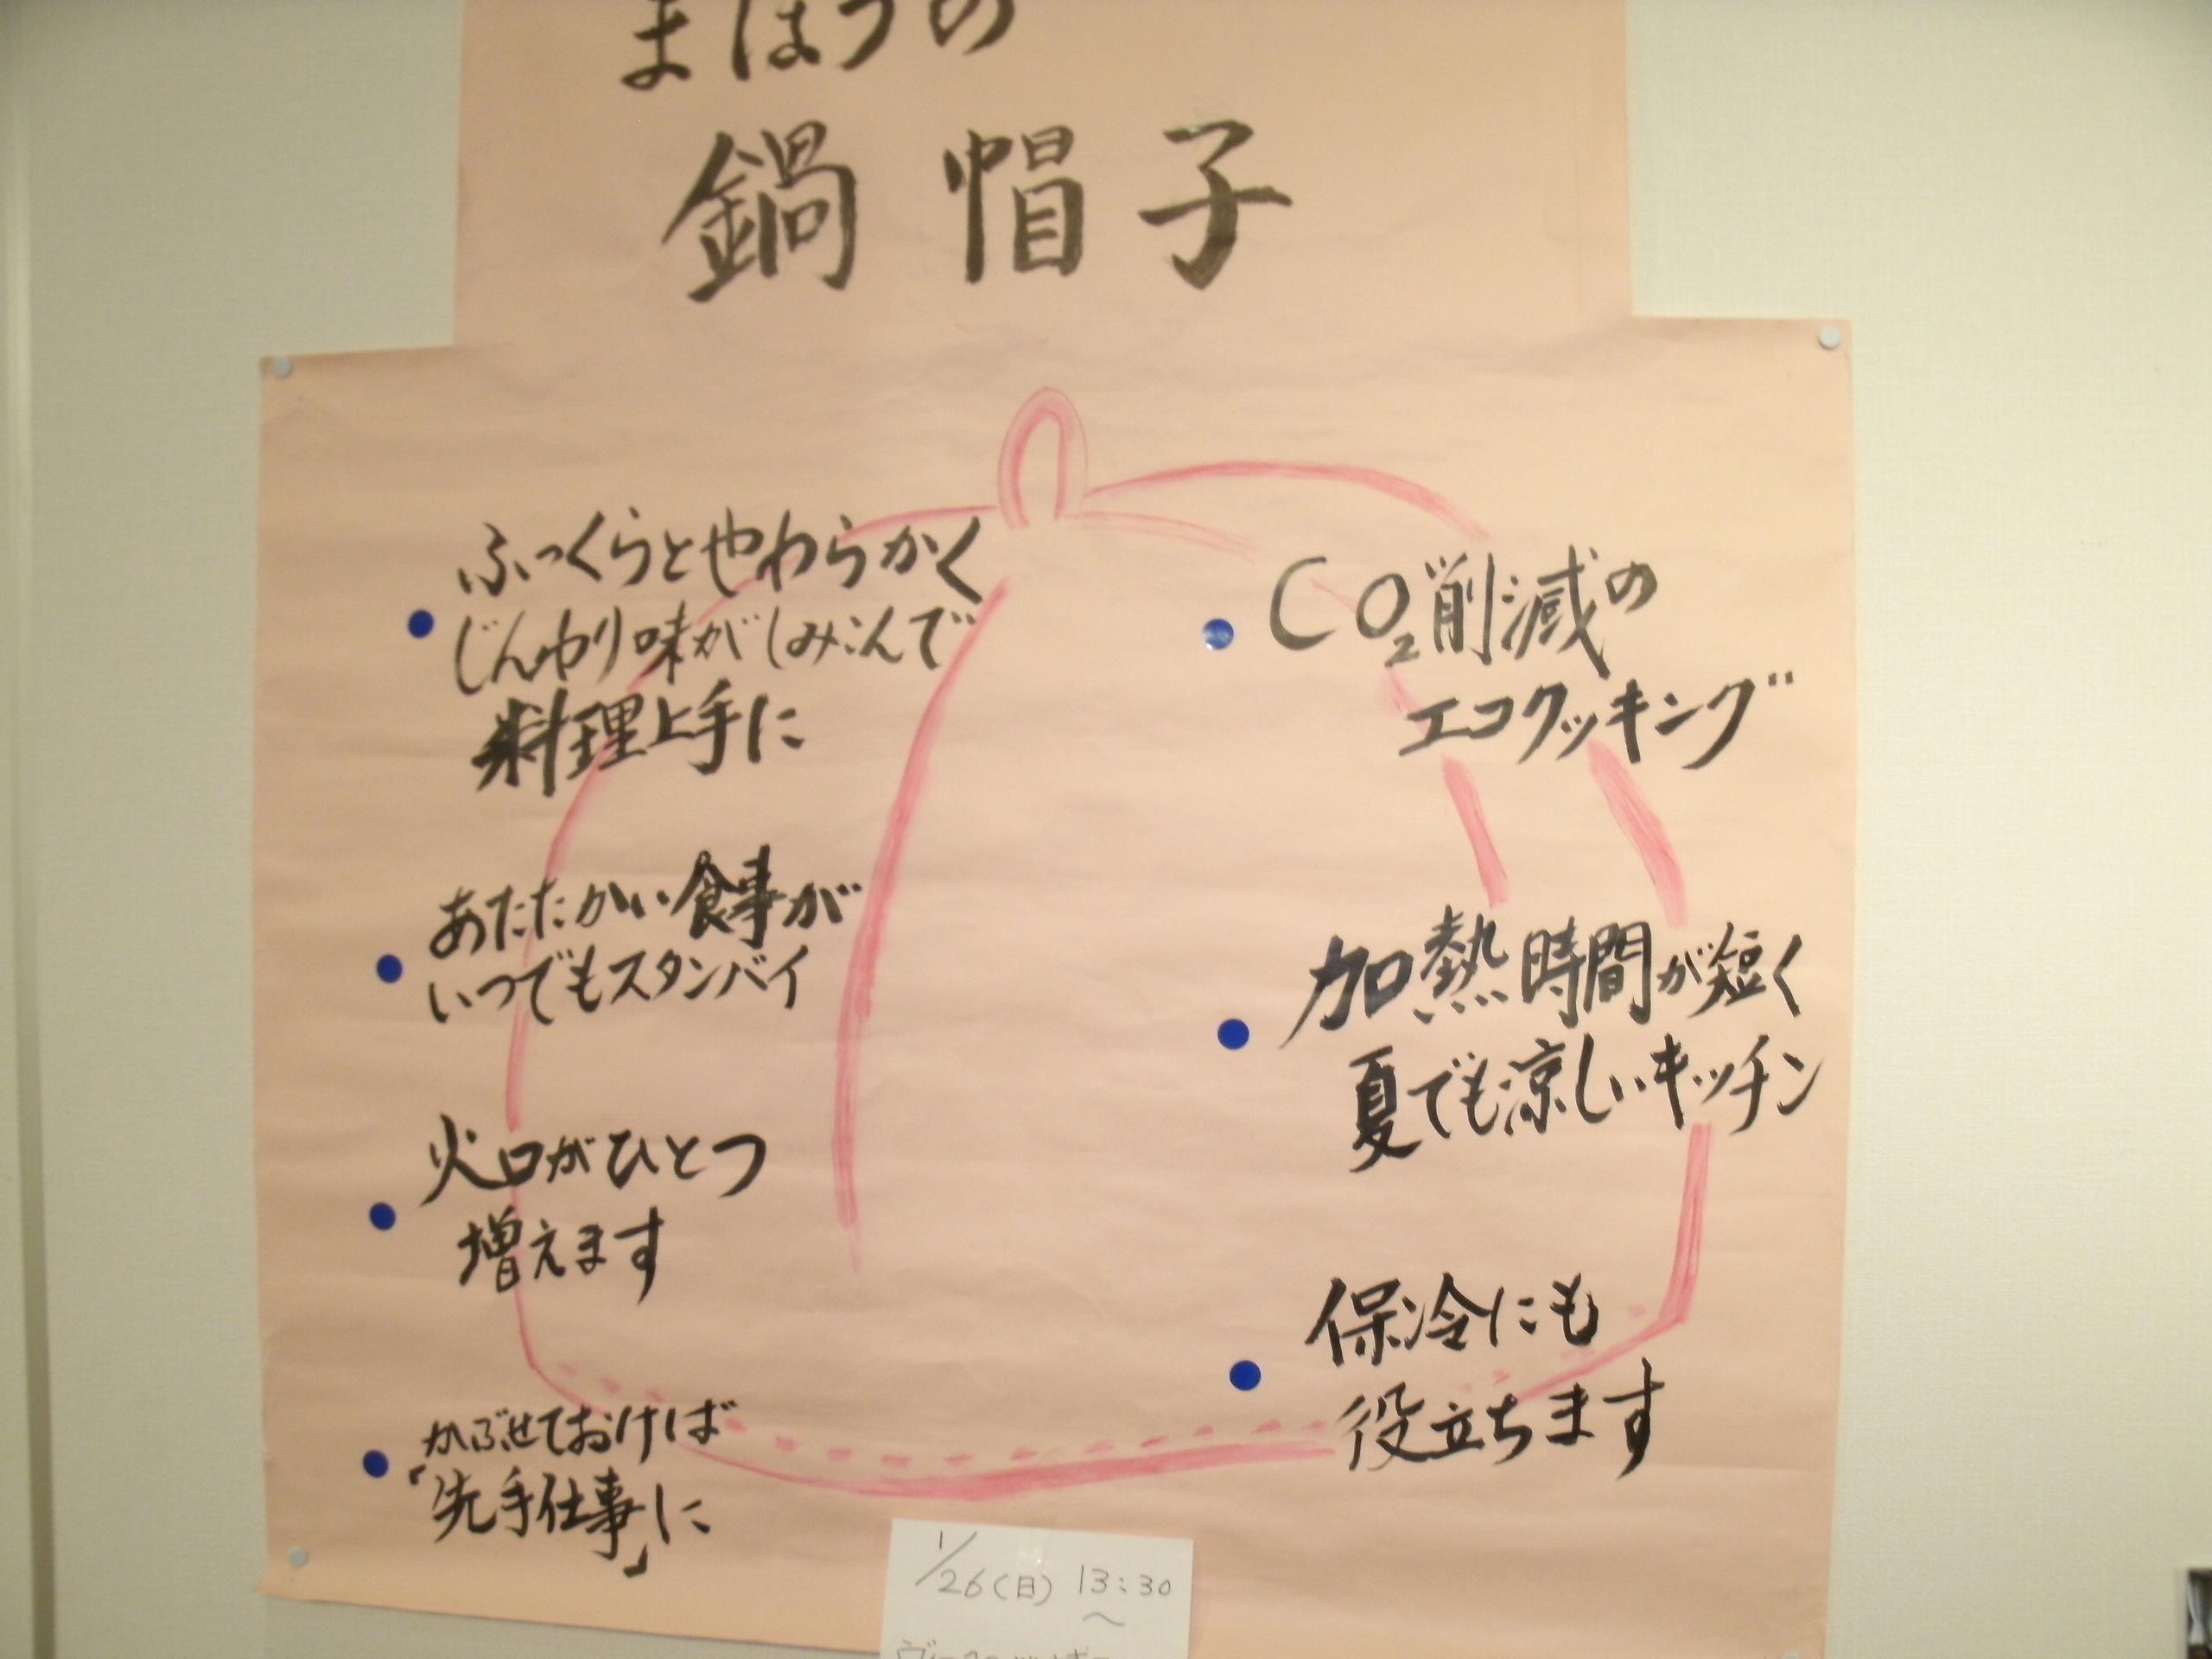 まほうの
鍋帽子
ふっくらとやわらかく
じんわり味がしみこんで
料理上手に
あたたかい食事が
いつでもスタンバイ
火口がひとつ
増えます
かぶせておけば
「先手仕事」に
CO₂削減の
エコクッキング
加熱時間が短く
夏でも涼しいキッチン
保冷にも
役立ちます
1/26(日) 13:30
～